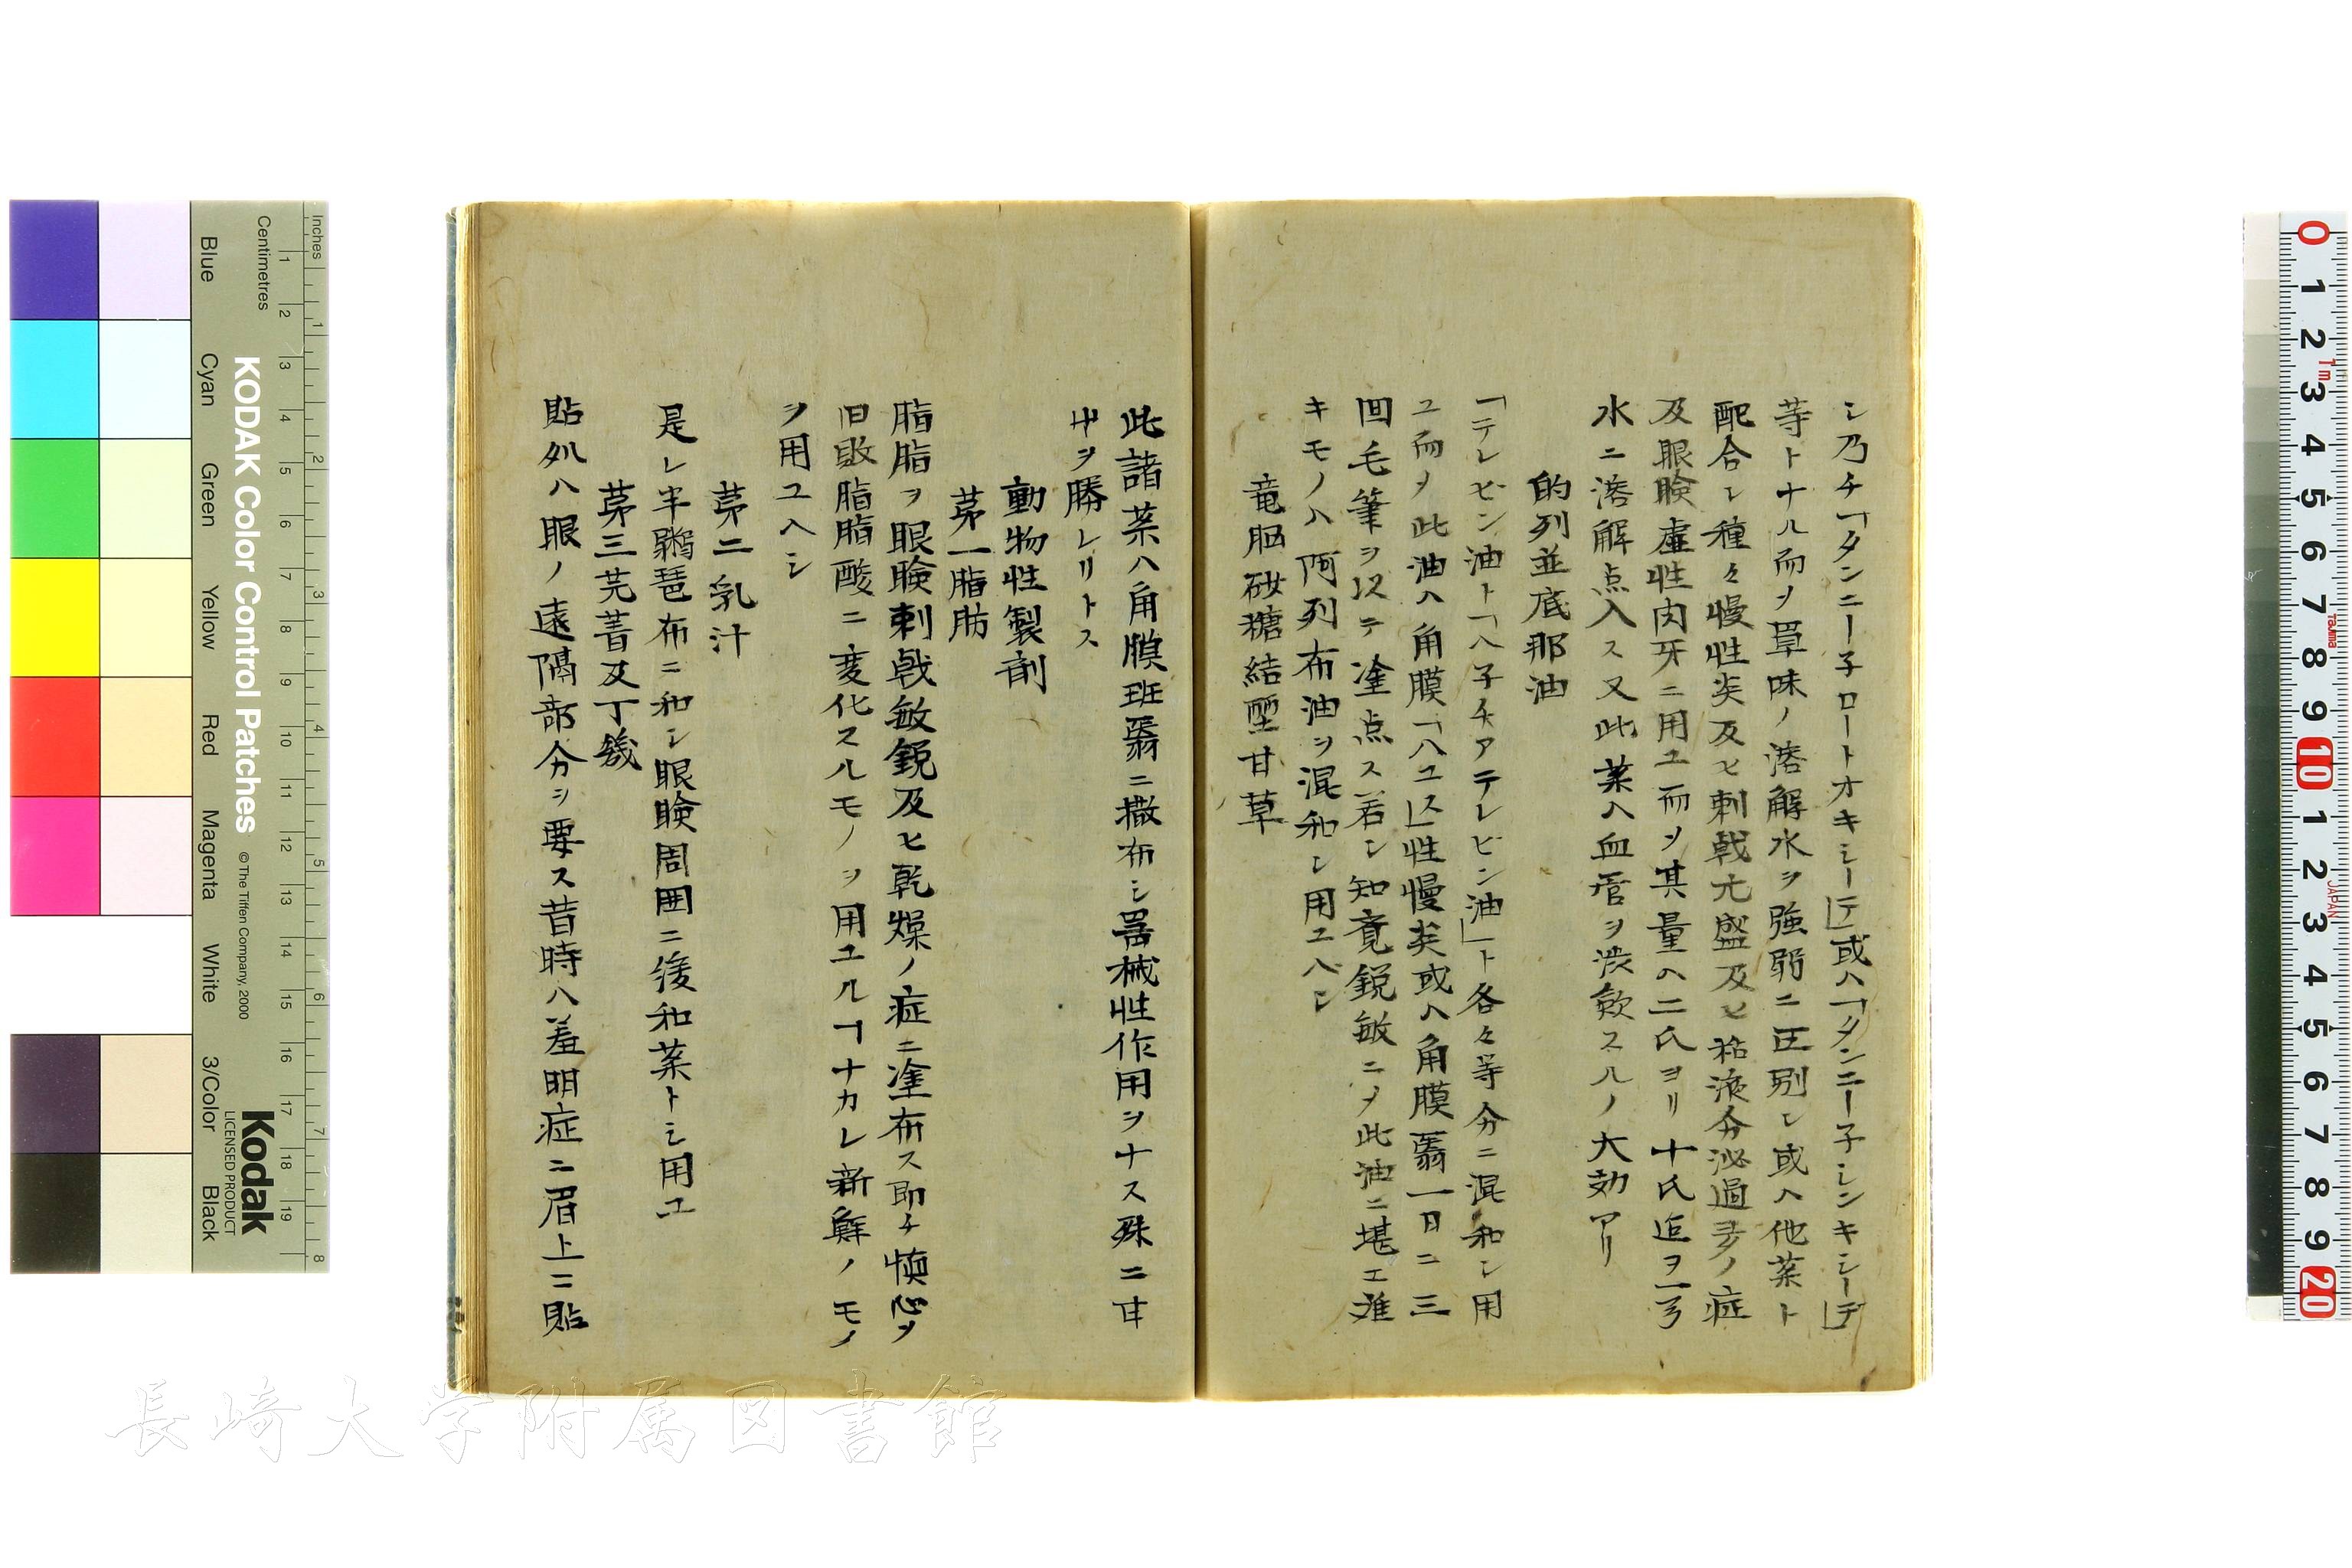 シ乃チ「タンニー子ロートオキシー」テ或ハ「タンニー子シンキシー」デ
等トナル而ヲ単味ノ溶解水ヲ強弱ニ区別シ或ハ他薬ト
配合シ種々慢性炎及ヒ刺戟亢盛及ヒ粘液分泌過多ノ症
及眼瞼虚性肉牙ニ用ユ而ヲ其量ハ二氏ヨリ十氏迄ヲ一ヲ
水ニ溶解点入ス又此薬ハ血管ヲ渋歛スルノ大効アリ
的列並底那油
「テレビン油ト「ハ子チアテレビン油」ト各々等分ニ混和シ用
ユ而ヲ此油ハ角膜「ハユス」性慢炎或ハ角膜翳一日ニ三
回毛筆ヲ以テ塗点ス若シ知覚鋭敏ニノ此油ニ堪エ難
キモノハ阿列布油ヲ混和シ用ユベシ
竜脳砂糖結㘴甘草
此諸薬ハ角膜班翳ニ撒布シ器械性作用ヲナス殊ニ甘
中ヲ勝レリトス
動物性製剤
第一脂肪
脂脂ヲ眼瞼刺戟敏鋭及ヒ乾燥ノ症ニ塗布ス即チ慎心ヲ
旧敗脂脂酸ニ変化スルモノヲ用ユルヿナカレ新鮮ノモノ
ヲ用ユヘシ
第二乳汁
是レ半粥琶布ニ和シ眼瞼周囲ニ緩和薬トシ用ユ
第三芫菁及丁幾
貼処ハ眼ノ遠隔部分ヲ要ス昔時ハ羞明症ニ眉上ニ貼
Inches
Centimetres
KODAK Color Control Patches
© The Tiffen Company, 2000
Kodak
LICENSED PRODUCT
Blue
Cyan
Green
Yellow
Red
Magenta
White
3/Color
Black
1 2 3 4 5 6 7 8 9 10 11 12 13 14 15 16 17 18 19
1 2 3 4 5 6 7 8
0 1 2 3 4 5 6 7 8 9 10 1 2 3 4 5 6 7 8 9 20
1m
Tajima
JAPAN
長崎大学附属図書館